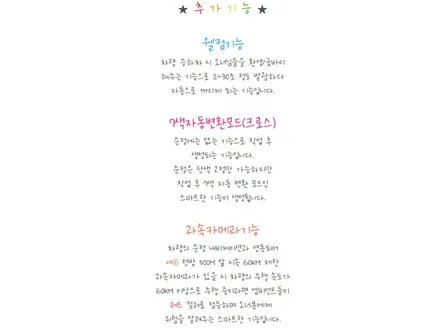 ★ 추 가 기 능 ★
웰컴기능
차량 승하차 시 오너님들을 환영/굿바이
해주는 기능으로 20~30초 정도 발광하다
자동으로 꺼지게 되는 기능입니다.
7색자동변환모드(크로스)
순정에는 없는 기능으로 작업 후
생성되는 기능입니다.
순정은 단색 고정만 가능하지만
작업 후 7색 자동 변환 모드인
스마트한 기능이 생성됩니다.
과속카메라기능
차량의 순정 내비게이션과 연동되어
예)) 전방 500M 앞 시속 60KM 제한
과속카메라가 있을 시 차량의 주행 속도가
60KM 이상으로 주행 중이라면 엠비언트들이
레드 컬러로 점등하며 오너분에게
위험을 알려주는 스마트한 기능입니다.